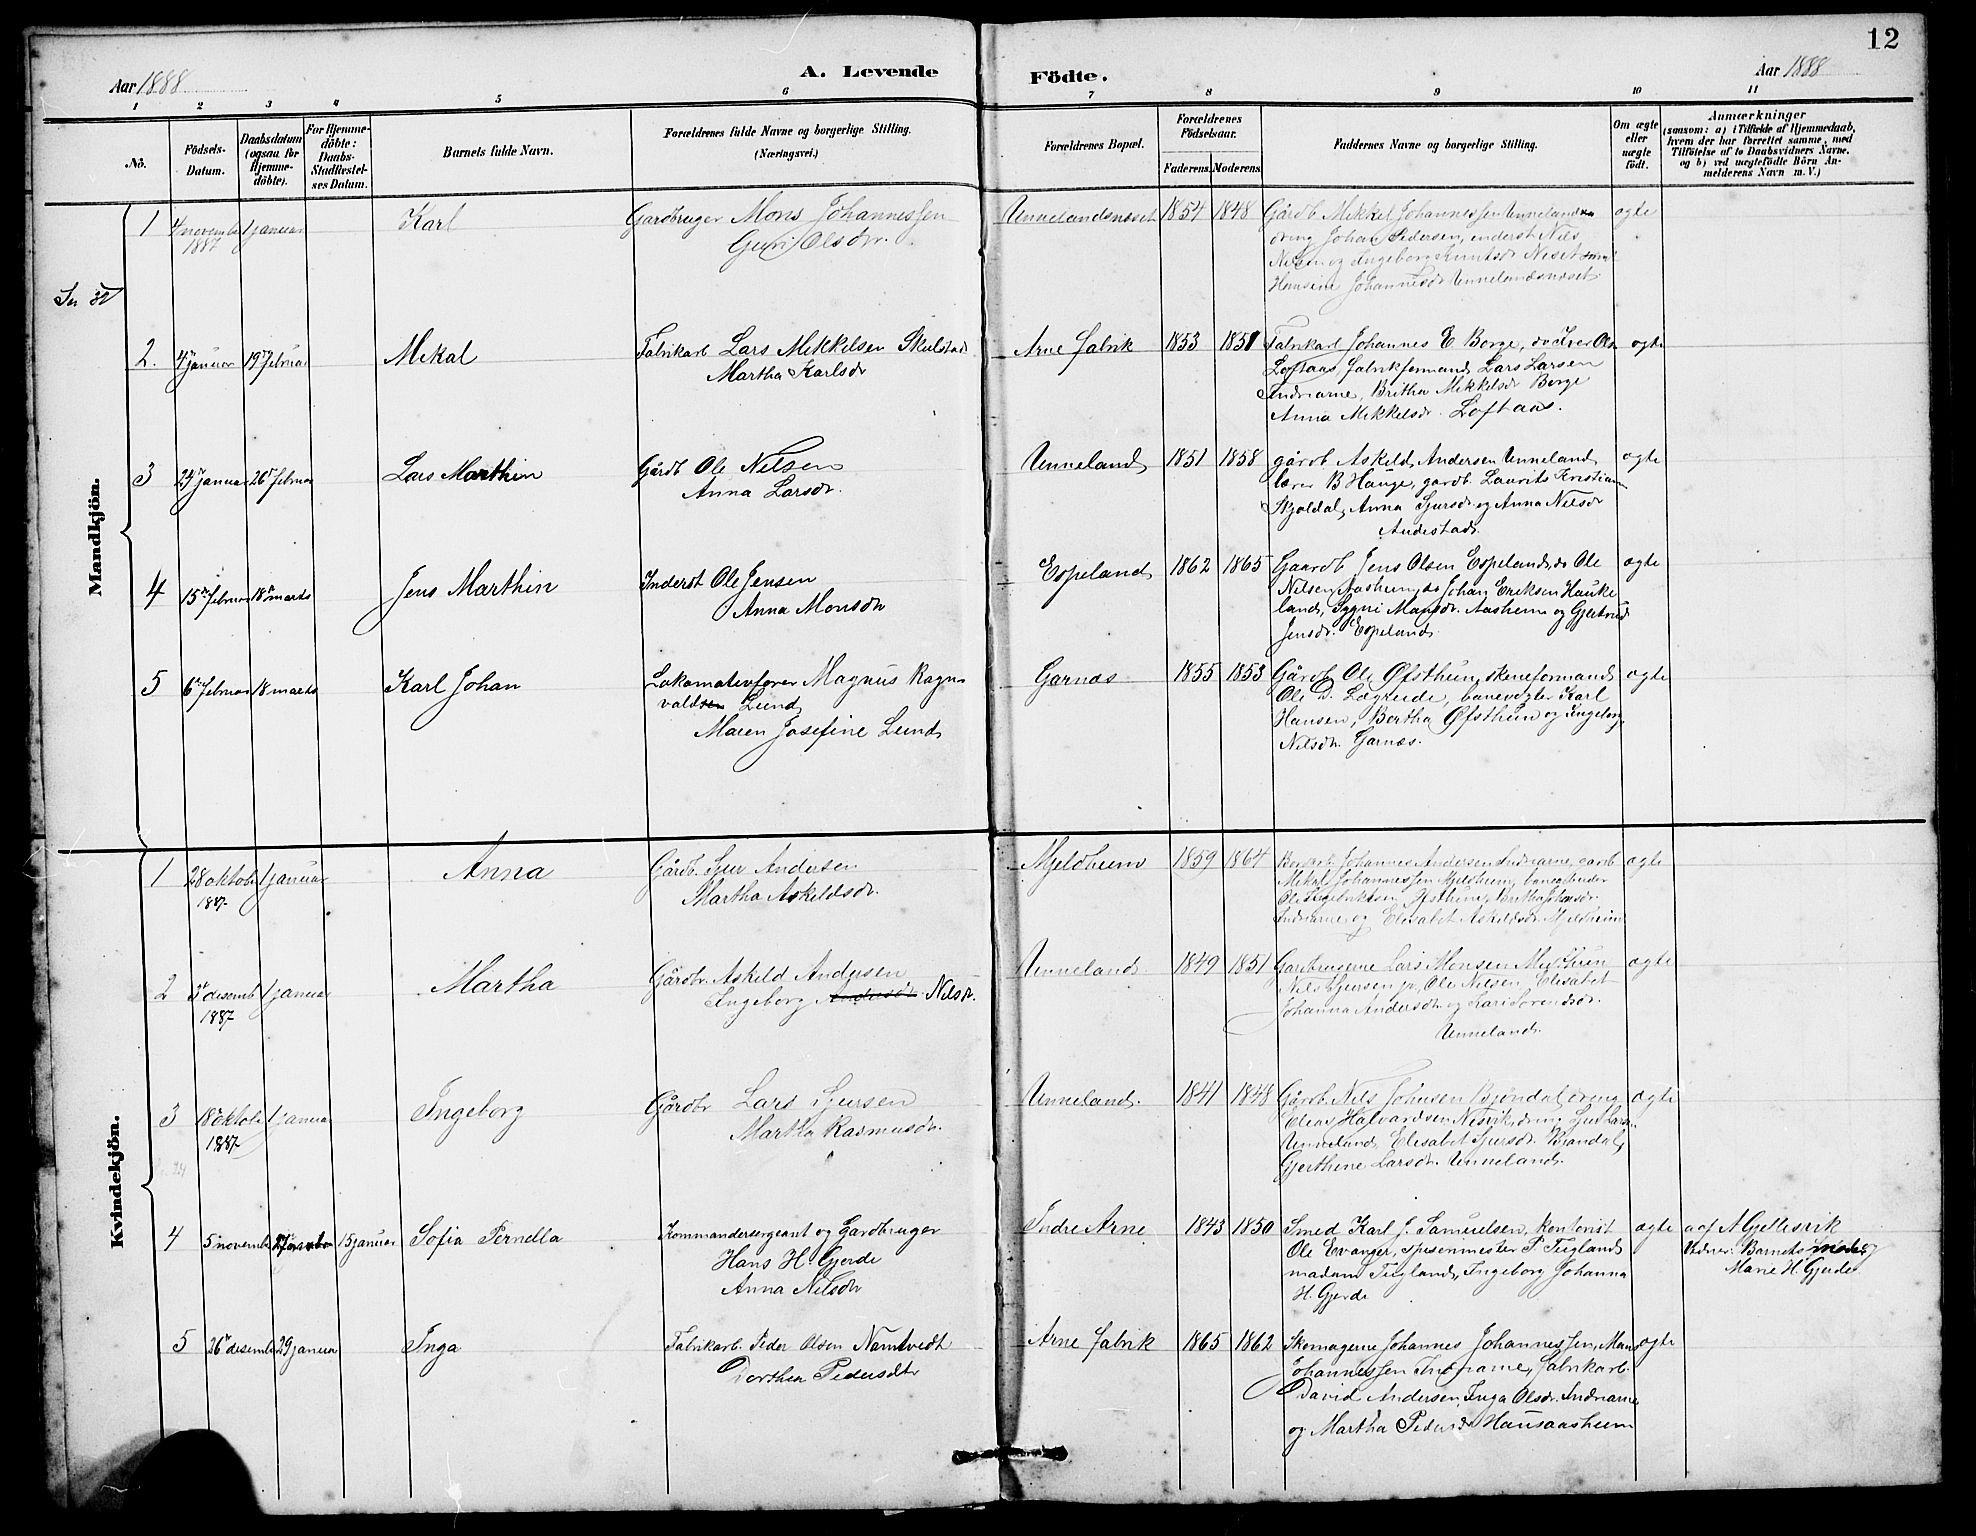 12
Aar 1888
A. Levende
Födte.
Aar 1888
1 2 3 4 5 6 7 8 9 10 11
No.
Födsels-Datum.
Daabsdatum (ogsaa for Hjemme-döbte).
For Hjemme-döbte: Daabs-Stadfestel-ses Datum.
Barnets fulde Navn.
Forældrenes fulde Navne og borgerlige Stilling. (Næringsvei.)
Forældrenes Bopæl.
Forældrenes Födselsaar.
Faderens. Moderens.
Faddernes Navne og borgerlige Stilling.
Om ægte eller uægte födt.
Anmærkninger
(saasom: a) i Tilfælde af Hjemmedaab, hvem der har forrettet samme, med Tilföielse af to Daabsvidners Navne, og b) ved uægtefödte Börn An-melderens Navn m. V.)
Mandkjön.
1 4 november 1887 1 januar Karl
Gardbruger Mons Johannessen
Guri Olsdr.
Unnelandsnæset 1854 1848
Gårdb Mikkel Johannessen Unneland
dreng Johan Pedersen, inderst Nils
Nilsen og Ingeborg Knutsd Neset
Hansine Johannesdr Unnelandsnæset
ægte
2. 4 januar 19 februar Mikal
Fabrikarb Lars Mikkelsen Skulstad
Martha Karlsdr
Arne fabrik 1853 1851
Fabrikarb Johannes E Borge,
Loftaas, fabrikformand Lars Larsen
Indrearne, Britha Mikkelsdr Borge
Anna Mikkelsdr. Loftaas.
ægte
3 24 januar 26 februar Lars Marthin
Gårdb Ole Nilsen
Anna Larsdr.
Unneland 1851 1858
gårdb Askeld Andersen Unneland
lærer B Hauge, gardb. Laurits Kristian
Skjoldal, Anna Sjursdr og Anna Nilsdr
Andestad.
ægte
4 15 februar 18 marts Jens Marthin
Inderst Ole Jensen
Anna Monsdr
Espeland 1862 1865
Gaardb Jens Olsen Espeland, do Ole
Nilsen Aasheim, do Johan Eriksen Hauke
land, Sygni Monsdr. Aasheim og Gjertrud
Jensdr. Espeland.
ægte
5 6 februar 18 marts Karl Johan
Lokomotivfører Magnus Ragn
valdsen Lund
Maren Josefine Lund
Garnæs 1855 1853
Gårdb Ole Øfsthun, skeneformand
Ole D. Lægreide, banevogter Karl
Hansen, Bertha Øfsthun og Ingeborg
Nilsdr. Garnæs.
ægte
Kvindekjön.
1 28 oktober 1887 1 januar Anna
Gårdb. Sjur Andersen
Martha Askeldsdr.
Mjeldheim 1859 1864
Johannes Andersen Indrearne, gardb
Mikal Johannessen Mjeldheim, banearbeider
Øfsthun, Britha Johansdr.
Indrearne og Elisabet Askeldsdr Mjeldheim
ægte
2 5 desemb 1887 1 januar Martha
Gårdbr. Askeld Andersen
Ingeborg Andersdr. Nilsdr.
Unneland 1849 1851
Gardbrugerne Lars Monsen Mjeldheim
Nils Sjursen jr, Ole Nilsen, Elisabet
Johanna Andersdr og Lars
Unneland.
ægte
3 18 oktober 1887 1 januar Ingeborg
Gårdbr Lars Sjursen
Martha Rasmusdr.
Unneland. 1841 1848
Gårdb. Nils Johnsen Bjøndal, dreng
Elias Halvardsen Nesvik, dreng Sjur Larsen
Unneland, Elisabet Sjursdr. Bjøndal,
Gjerthine Larsdr. Unneland.
ægte
4 5 novemb 27 november 15 januar Sofia Pernella
Kommandersergeant og Gardbruger
Hans H. Gjerde
Anna Nilsdr
Indre Arne 1843 1850
Smed Karl J. Samuelsen, kontorist
Ole Evanger, spisemester P. Tugland
madam Tugland, Ingeborg Johanna
H. Gjerde
ægte
a af A Gjellesvik
Vidner: Barnets moder og
Marie H. Gjerde
5 26 desemb 29 januar Inga
Fabrikarb. Peder Olsen Namtvedt
Dorthea Pedersdtr
Arne fabrik 1865 1862
Skomagerne Johannes Johannessen, Mons
Johannessen Indrearne, fabrikarb.
David Andersen, Inga Olsdr. Indrearne
og Martha Pedersdr Hausaasheim
ægte